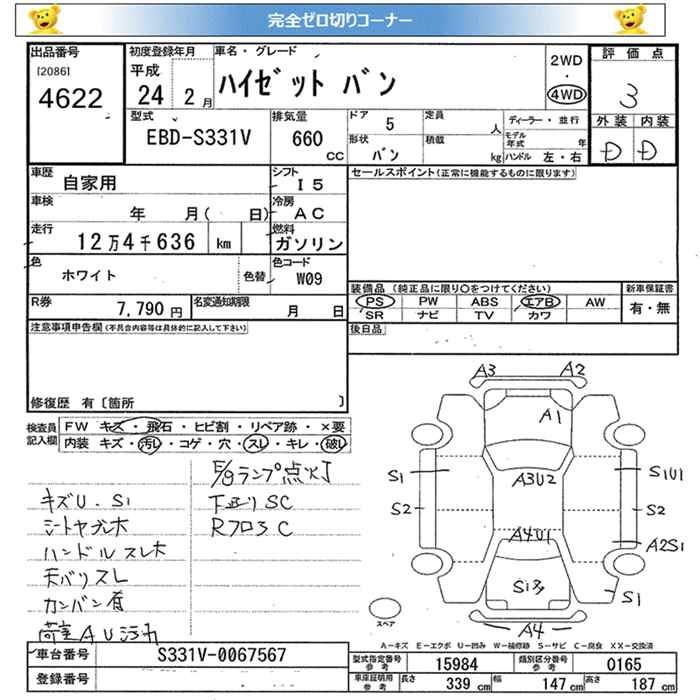 完全ゼロ切りコーナー
出品番号
[2086]
4622
初度登録年月
平成
24 2月
車名・グレード
ハイゼット バン
2WD
・
4WD
評価点
3
外装 内装
D D
型式
EBD-S331V
排気量
660
cc
ドア 5
形状 バン
定員 人
積載 kg
ディーラー・並行
モデル年式 年
ハンドル 左・右
車歴 自家用
シフト I5
車検 年 月( 日)
冷房 AC
走行 12万4千636 km
燃料 ガソリン
色 ホワイト
色替
色コード W09
R券 7,790円
名変通知期限 月 日
セールスポイント(正常に機能するものに限ります)
装備品 (純正品に限り○をつけてください)
PS PW ABS エアB AW
SR ナビ TV カワ
新車保証書
有・無
後日品
注意事項申告欄(不具合内容等は具体的に記入して下さい)
修復歴 有〔箇所 〕
検査員記入欄
FW キズ・飛石・ヒビ割・リペア跡・×要
内装 キズ・汚レ・コゲ・穴・スレ・キレ・破レ
E/gランプ点灯
キズU.S1
下廻りSC
シートヤブレ大
RフロアC
ハンドルスレ大
天バリスレ
カンバン有
荷室AU汚れ
A3 A2
A1
A3U2
A4U1
S1
S2
S1U1
S2
A2S1
S1
A4
スペア
A-キズ E-エクボ U-凹み W-補修跡 S-サビ C-腐食 XX-交換済
車台番号 S331V-0067567
登録番号
型式指定番号 参考 15984
類別区分番号 参考 0165
車庫証明用 参考
長さ 339 cm
幅 147 cm
高さ 187 cm